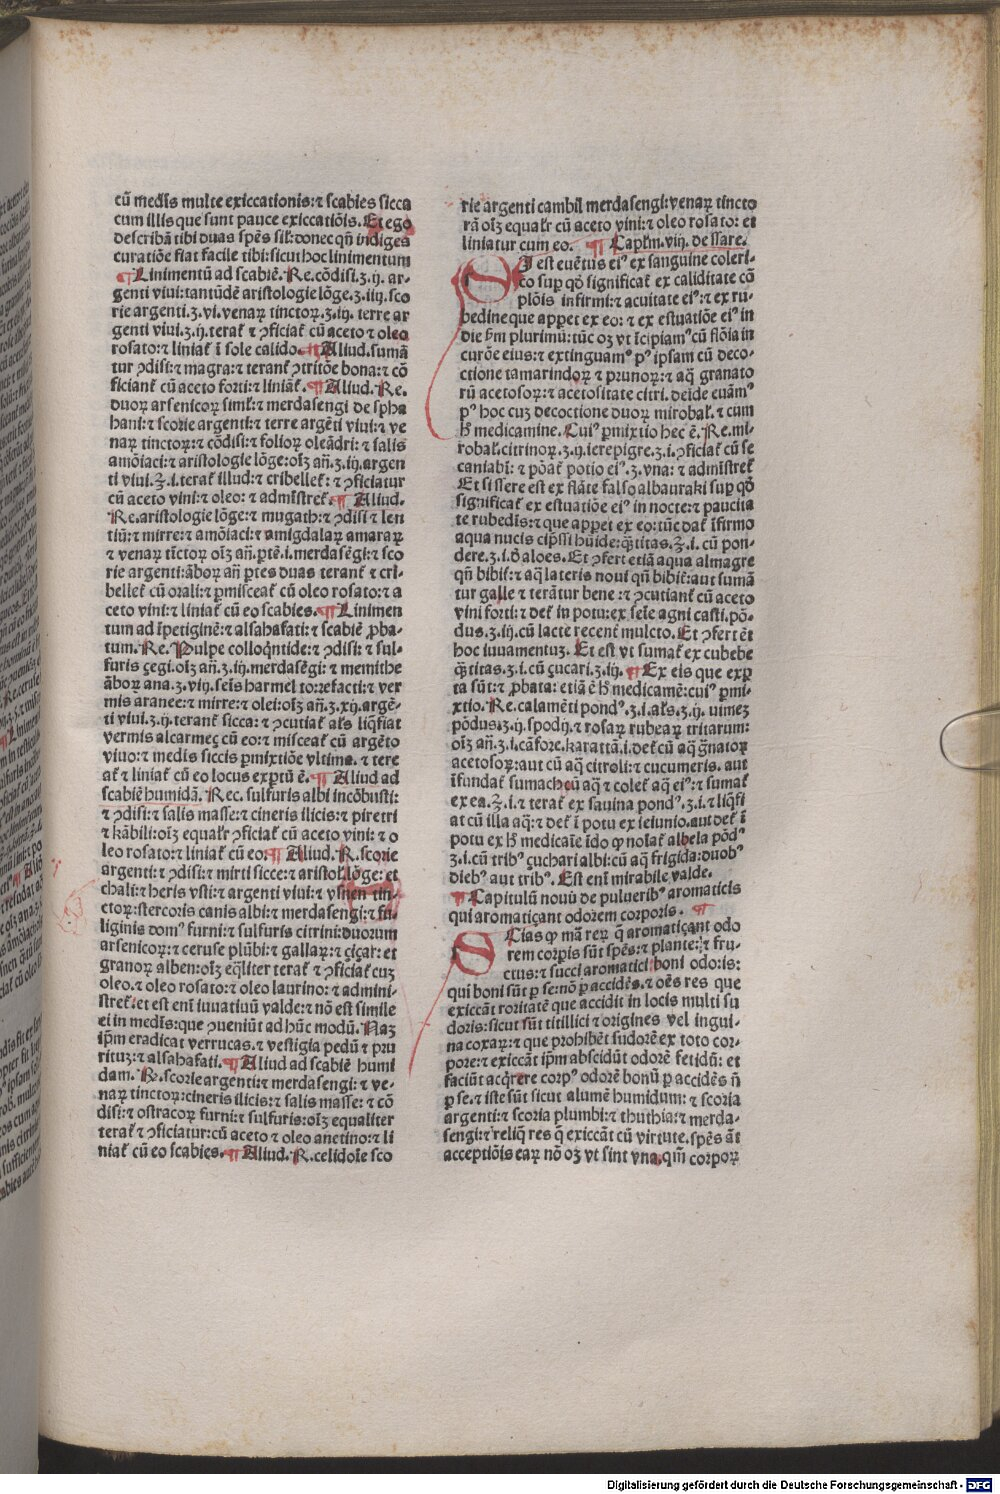 cū medīs multe exiccationis: ⁊ scabies sicca
cum illis que sunt pauce exiccatiōis. Et ego
describā tibi duas spēs sil: donec qñ indiges
curatiōe fiat facile tibi: sicut hoc linimentum
¶ Linimentū ad scabiē. Re. cōdisi. ʒ. ij. ar-
genti viui: tantūdē aristologie lōge. ʒ. iiij. sco
rie argenti. ʒ. vi. venaꝝ tinctoꝝ. ʒ. iij. terre ar
genti viui. ʒ. ij. terat̄ ⁊ ꝯficiat̄ cū aceto ⁊ oleo
rosato: ⁊ liniat̄ ī sole calido. ¶ Aliud. sumā
tur ꝯdisi: ⁊ magra: ⁊ terant̄ ꝯtritōe bona: ⁊ cō
ficiant̄ cū aceto forti: ⁊ liniāt̄. ¶ Aliud. Re.
duoꝝ arsenicoꝝ siml̄: ⁊ merdasengi de spha
hani: ⁊ scorie argenti: ⁊ terre argēti viui: ⁊ ve
naꝝ tinctoꝝ: ⁊ cōdisi: ⁊ folioꝝ oleādri: ⁊ salis
amōiaci: ⁊ aristologie lōge: oīʒ añ. ʒ. iij. argen
ti viui. ℥. i. terat̄ illud: ⁊ cribellet̄: ⁊ ꝯficiatur
cū aceto vini: ⁊ oleo: ⁊ admīstret̄. ¶ Aliud.
Re. aristologie lōge: ⁊ mugath: ⁊ ꝯdisi ⁊ len
tiū: ⁊ mirre: ⁊ amōiaci: ⁊ amigdalaꝝ amaraꝝ
⁊ venaꝝ tīctoꝝ oīʒ añ. ꝑtē. i. merdasēgi: ⁊ sco
rie argenti: āboꝝ añ ꝑtes duas terant̄ ⁊ cri-
bellet̄ cū orali: ⁊ ꝑmisceat̄ cū oleo rosato: ⁊ a
ceto vini: ⁊ liniat̄ cū eo scabies. ¶ Linimen
tum ad īpetiginē: ⁊ alsahafati: ⁊ scabiē ꝓba-
tum. Re. Pulpe colloq̄ntide: ⁊ ꝯdisi: ⁊ sul-
furis çegi. oīʒ añ. ʒ. iij. merdasēgi: ⁊ memithe
āboꝝ ana. ʒ. viij. seīs harmel torefacti: ⁊ ver
mis aranee: ⁊ mirre: ⁊ olei: oīʒ añ. ʒ. xij. argē-
ti viui. ʒ. ij. terant̄ sicca: ⁊ ꝯcutiat̄ ał̄s liq̄fiat
vermis alcarmeç cū eo: ⁊ misceat̄ cū argēto
viuo: ⁊ medīs siccis ꝑmixtiōe vltima. ⁊ tere
at̄ ⁊ liniat̄ cū eo locus exꝑtū ē. ¶ Aliud ad
scabiē humidā. Rec. sulfuris albi incōbusti:
⁊ ꝯdisi: ⁊ salis masse: ⁊ cineris ilicis: ⁊ piretri
⁊ kābili: oīʒ equalr̄ ꝯficiat̄ cū aceto vini: ⁊ o
leo rosato: ⁊ liniat̄ cū eo. ¶ Aliud. R. scorie
argenti: ⁊ ꝯdisi: ⁊ mirti sicce: ⁊ aristol. lōge: et
chali: ⁊ heris vsti: ⁊ argenti viui: ⁊ venen tin-
ctoꝝ: stercoris canis albi: ⁊ merdasengi: ⁊ fu-
liginis domꝰ furni: ⁊ sulfuris citrini: duorum
arsenicoꝝ: ⁊ ceruse plūbi: ⁊ gallaꝝ: ⁊ çiçar: et
granoꝝ alben: oīʒ eq̄liter terat̄ ⁊ ꝯficiat̄ cuʒ
oleo. ⁊ oleo rosato: ⁊ oleo laurino: ⁊ admini-
stret̄: et est enī iuuatiuū valde: ⁊ nō est simile
ei in medīs: que ꝓueniūt ad hūc modū. Naʒ
ip̄m eradicat verrucas. ⁊ vestigia pedū ⁊ pru
rituʒ: ⁊ alsahafati. ¶ Aliud ad scabiē humi
dam. R. scorie argenti: ⁊ merdasengi: ⁊ ve-
naꝝ tinctoꝝ: cineris ilicis: ⁊ salis masse: ⁊ cō
disi: ⁊ ostracoꝝ furni: ⁊ sulfuris: oīʒ equaliter
terat̄ ⁊ ꝯficiatur: cū aceto ⁊ oleo anetino: ⁊ li
niat̄ cū eo scabies. ¶ Aliud. R. celidoīe sco
rie argenti cambil merdasengi: venaꝝ tincto
rā oīʒ equalr̄ cū aceto vini: ⁊ oleo rosato: et
liniatur cum eo. ¶ Capl̄m. viij. de ssare.
SI est euētus eiꝰ ex sanguine coleri-
co suꝑ qd̄ significat̄ ex caliditate cū
plōis infirmi: ⁊ acuitate eiꝰ: ⁊ ex ru-
bedine que apꝑet ex eo: ⁊ ex estuatiōe eiꝰ in
die ẜm plurimū: tūc oʒ vt īcipiamꝰ cū flōia in
curōe eius: ⁊ extinguamꝰ pꝰ ipsam cū deco-
ctione tamarindoꝝ ⁊ prunoꝝ: ⁊ aq̄ granato
rū acetosoꝝ: ⁊ acetositate citri. deīde euāmꝰ
pꝰ hoc cuʒ decoctione duoꝝ mirobal̄. ⁊ cum
h̄ medicamine. Cuiꝰ ꝑmixtio hec ē. Re. mi-
robal̄. citrinoꝝ. ʒ. ij. ierepigre. ʒ. i. ꝯficiat̄ cū se
caniabī: ⁊ pōat̄ potio eiꝰ. ʒ. vna: ⁊ admīstret̄
Et si ssere est ex flāte falso albauraki suꝑ qd̄
significat̄ ex estuatiōe eiꝰ in nocte: ⁊ paucita
te rubedīs: ⁊ que apꝑet ex eo: tūc dat̄ īfirmo
aqua nucis cip̄ssi hūide: q̄titas. ℥. i. cū pon-
dere. ʒ. i. d̄ aloes. Et ꝯfert etiā aqua almagre
qñ bibit̄: ⁊ aq̄ lateris noui qñ bibit̄: aut sumā
tur galle ⁊ terātur bene: ⁊ ꝯcutiant̄ cū aceto
vini forti: ⁊ det̄ in potu: ex seīe agni casti. pō-
dus. ʒ. iij. cū lacte recent̄ mulcto. Et ꝯfert et̄
hoc iuuamentuʒ. Et est vt sumat̄ ex cubebe
q̄titas. ʒ. i. cū çucari. ʒ. iij. ¶ Ex eis que exꝑ
ta sūt: ⁊ ꝓbata: etiā ē h̄ medicamē: cuiꝰ ꝑmi-
xtio. Re. calamēti pondꝰ. ʒ. i. ał̄s. ʒ. ij. uimeʒ
pōdus. ʒ. ij. spodij. ⁊ rosaꝝ rubeaꝝ tritarum:
oīʒ añ. ʒ. i. cāfore. karattā. i. det̄ cū aq̄ g̃natoꝝ
acetosoꝝ: aut cū aq̄ citroli: ⁊ cucumeris. aut
īfundat̄ sumach cū aq̄ ⁊ colet̄ aq̄ eiꝰ: ⁊ sumat̄
ex ea. ℥. i. ⁊ terat̄ ex sauina pondꝰ. ʒ. i. ⁊ liq̄fi
at cū illa aq̄: ⁊ det̄ ī potu ex ieiunio. aut det̄ ī
potu ex h̄ medicaīe īdo qͥ nolat̄ albela pōdꝰ
ʒ. i. cū tribꝰ çuchari albi: cū aq̄ frigida: duobꝰ
diebꝰ aut tribꝰ. Est enī mirabile valde.
¶ Capitulū nouū de pulueribꝰ aromaticis
qui aromatiçant odorem corporis. ¶
SCias qp mā reꝝ q̄ aromatiçant odo
rem corꝑis sūt spēs: ⁊ plante: ⁊ fru-
ctus: ⁊ succi aromatici boni odoris:
qui boni sūt ꝑ se: nō ꝑ accidēs. ⁊ oēs res que
exiccāt roritatē que accidit in locis multi su
doris: sicut sūt titillici ⁊ origines vel ingui-
na coxaꝝ: ⁊ que prohibēt sudorē ex toto cor-
pore: ⁊ exiccāt ip̄m abscidūt odorē fetidū: et
faciūt acq̄rere corpꝰ odorē bonū ꝑ accidēs ñ
ꝑ se. ⁊ iste sūt sicut alumē humidum: ⁊ scoria
argenti: ⁊ scoria plumbi: ⁊ thuthia: ⁊ merda-
sengi: ⁊ reliq̄ res q̄ exiccāt cū virtute. spēs āt
acceptiōis eaꝝ nō oʒ vt sint vna. qm̄ corpoꝝ
Digitalisierung gefördert durch die Deutsche Forschungsgemeinschaft - DFG